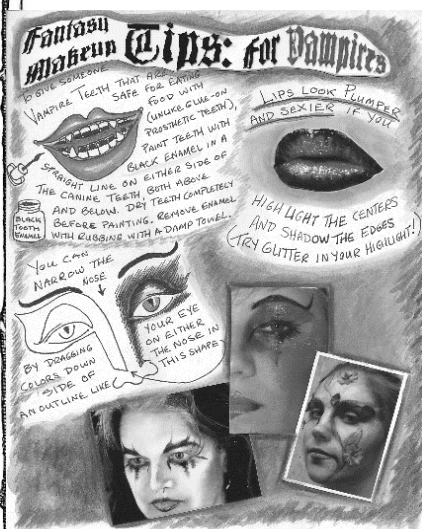 Fantasy
Makeup Tips: for Vampires
TO GIVE SOMEONE
VAMPIRE TEETH THAT ARE
SAFE FOR EATING
FOOD WITH
(UNLIKE GLUE-ON
PROSTHETIC TEETH),
PAINT TEETH WITH
BLACK ENAMEL IN A
STRAIGHT LINE ON EITHER SIDE OF
THE CANINE TEETH BOTH ABOVE
AND BELOW. DRY TEETH COMPLETELY
BEFORE PAINTING. REMOVE ENAMEL
WITH RUBBING WITH A DAMP TOWEL.
BLACK
TOOTH
ENAMEL
LIPS LOOK PLUMPER
AND SEXIER IF YOU
HIGHLIGHT THE CENTERS
AND SHADOW THE EDGES
(TRY GLITTER IN YOUR HIGHLIGHT!)
YOU CAN
NARROW THE
NOSE
BY DRAGGING
COLORS DOWN
SIDE OF
AN OUTLINE LIKE
YOUR EYE
ON EITHER
THE NOSE IN
THIS SHAPE